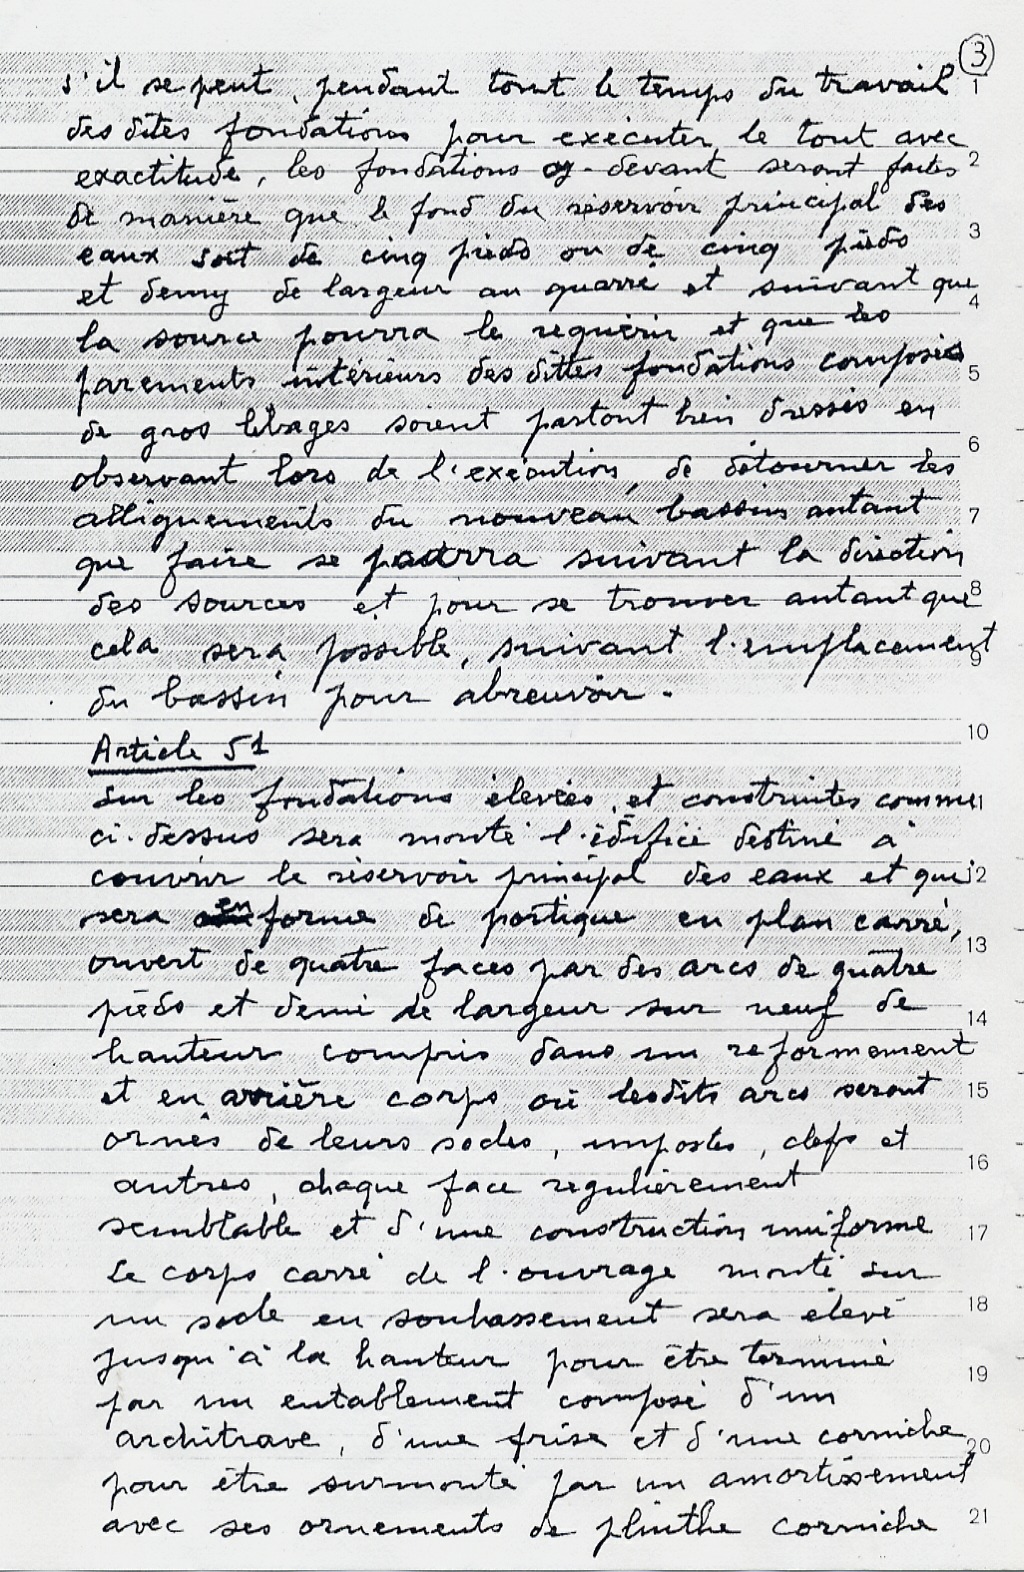 3
s'il se peut, pendant tout le temps du travail 1
des dites fondations pour exécuter le tout avec
exactitude, les fondations cy-devant seront faites 2
de manière que le fond du réservoir principal des
eaux soit de cinq pieds ou de cinq pieds 3
et demy de largeur au quarré et suivant que
la source pourra le requérir et que les 4
parements intérieurs des dittes fondations composées 5
de gros libages soient partout bien dressés en
observant lors de l'exécution, de détourner les 6
alliguements du nouveau bassin autant 7
que faire se pourra suivant la direction
des sources et pour se trouver autant que 8
cela sera possible, suivant l'emplacement 9
du bassin pour abreuvoir.
Article 51 10
Sur les fondations élevées, et construites comme 11
ci-dessus sera monté l'édifice destiné à
couvrir le réservoir principal des eaux et qui 12
sera en forme de portique en plan carré,
ouvert de quatre faces par des arcs de quatre 13
pieds et demi de largeur sur neuf de
hauteur compris dans un reformement 14
et en arrière corps où lesdits arcs seront 15
ornés de leurs socles, impostes, clefs et
autres, chaque face regulièrement 16
semblable et d'une construction uniforme 17
Le corps carré de l'ouvrage monté sur
un socle en soubassement sera élevé 18
jusqu'à la hauteur pour être terminé
par un entablement composé d'un 19
architrave, d'une frise et d'une corniche 20
pour être surmonté par un amortissement
avec ses ornements de plinthe corniche 21